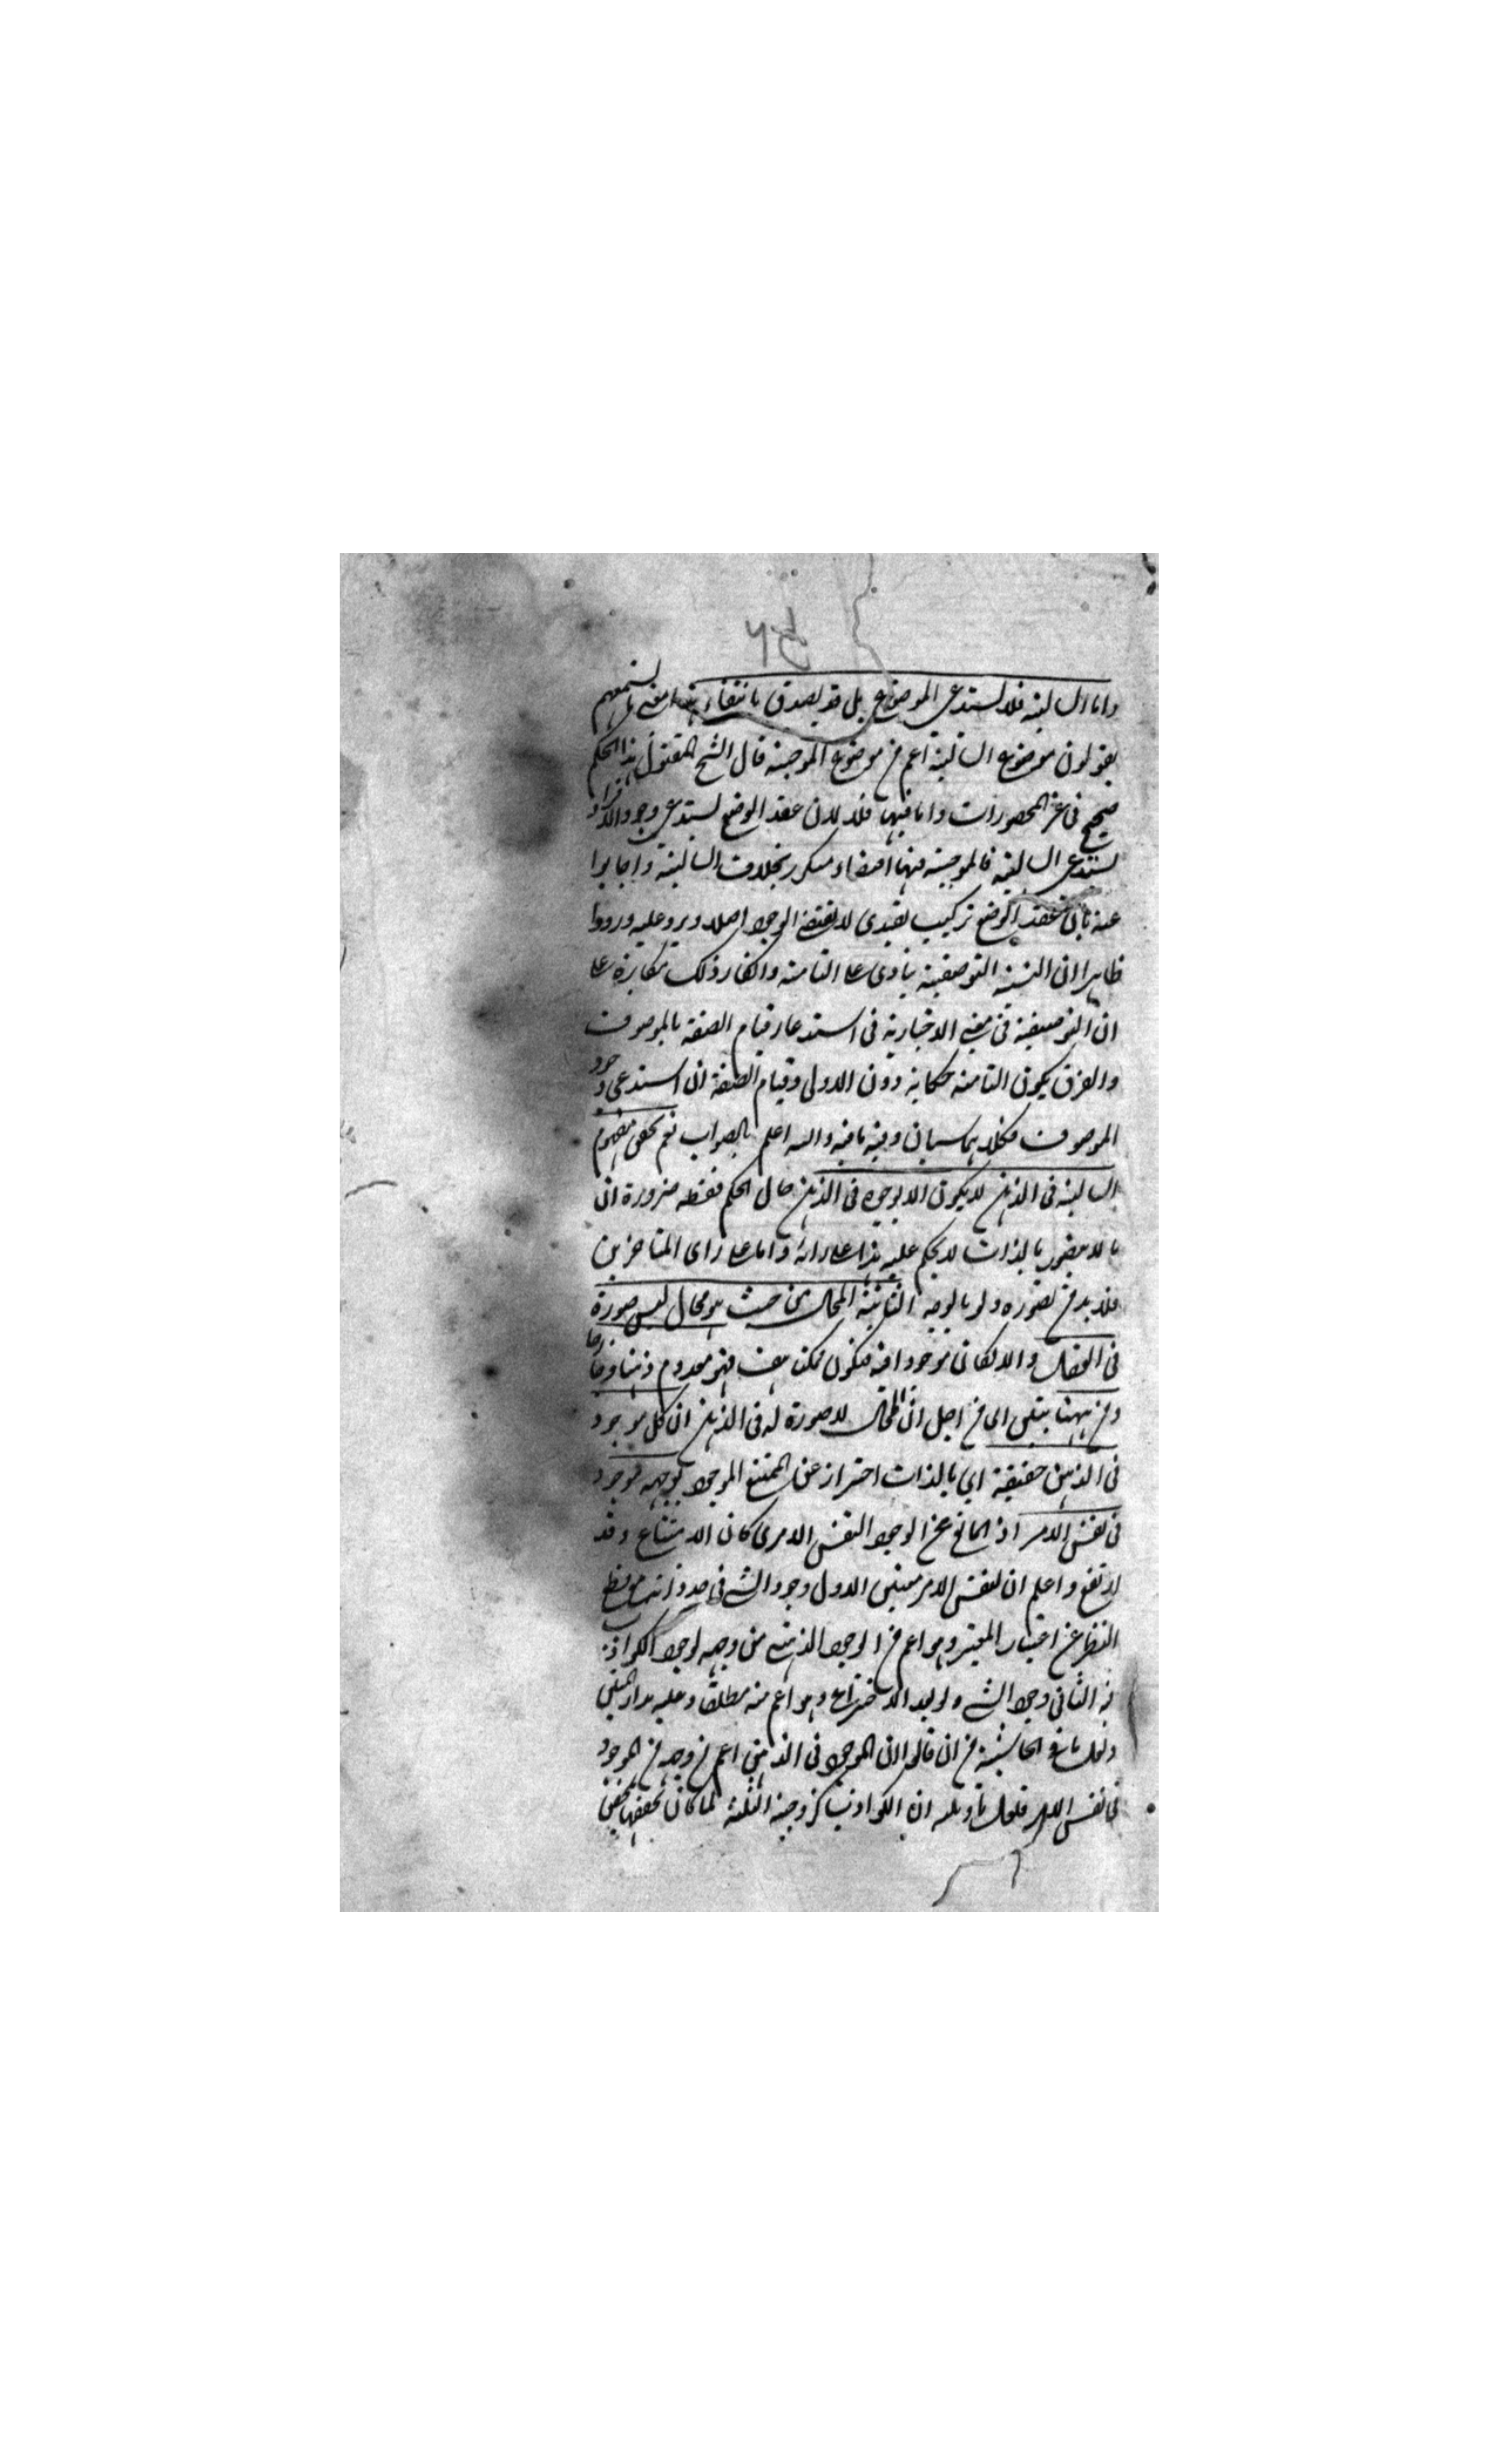 ٥٢
واما السالبة فلا تستدعى الموضوع بل قد يصدق بانتفائه هذا معنى ما تسمعهم
يقولون موضوع السالبة اعم من موضوع الموجبة قال الشيخ المقتول هذا الحكم
صحيح فى غير المحصورات واما فيها فلا لان عقد الوضع يستدعى وجود الافراد
تستدعى السالبة فالموجبة فيها اقتضاء متكرر بخلاف السالبة واجابوا
عنه بان عقد الوضع تركيب تقييدى لا يقتضى الوجود اصلا ويرد عليه ورودا
ظاهرا ان النسبة التوصيفية ينادى على التامة وانكار ذلك مكابرة على
ان التوصيفية فى معنى الاخبارية فى استدعاء قيام الصفة بالموصوف
والفرق بكون التامة حكاية دون الاولى وقيام الصفة ان استدعى وجود
الموصوف فكلاهما سيان وفيه ما فيه والله اعلم بالصواب نعم تحقق مفهوم
السالبة فى الذهن لا يكون الا بوجوده فى الذهن حال الحكم فقط ضرورة ان
ما لا يتصور بالذات لا يحكم عليه هذا على رائه واما على راى المتاخرين
فلا بد من تصوره ولو بالوجه الثانية المحال من حيث هو محال ليس صورة
فى العقل والا لكان موجودا فيه فيكون ممكنا هف فهو معدوم ذهنا وخارجا
ومن ههنا يتبين اى من اجل ان المحال لا صورة له فى الذهن ان كل موجود
فى الذهن حقيقة اى بالذات احتراز عن الممتنع الموجود بوجهه موجود
فى نفس الامر اذ المانع عن الوجود النفس الامرى كان الامتناع وقد
ارتفع واعلم ان لنفس الامر معنيين الاول وجود الشئ فى حد ذاته مع قطع
النظر عن اعتبار المعتبر وهو اعم من الوجود الذهنى من وجه لوجود الكواذب
فيه الثانى وجود الشئ ولو بعد الاختراع وهو اعم منه مطلقا وعليه مدار المتن
ولعل ما فى الحاشية من ان قالوا ان الموجود فى الذهن اعم من وجه من الموجود
فى نفس الامر فلعل تاويله ان الكواذب كزوجية الثلثة لما كان تحققها